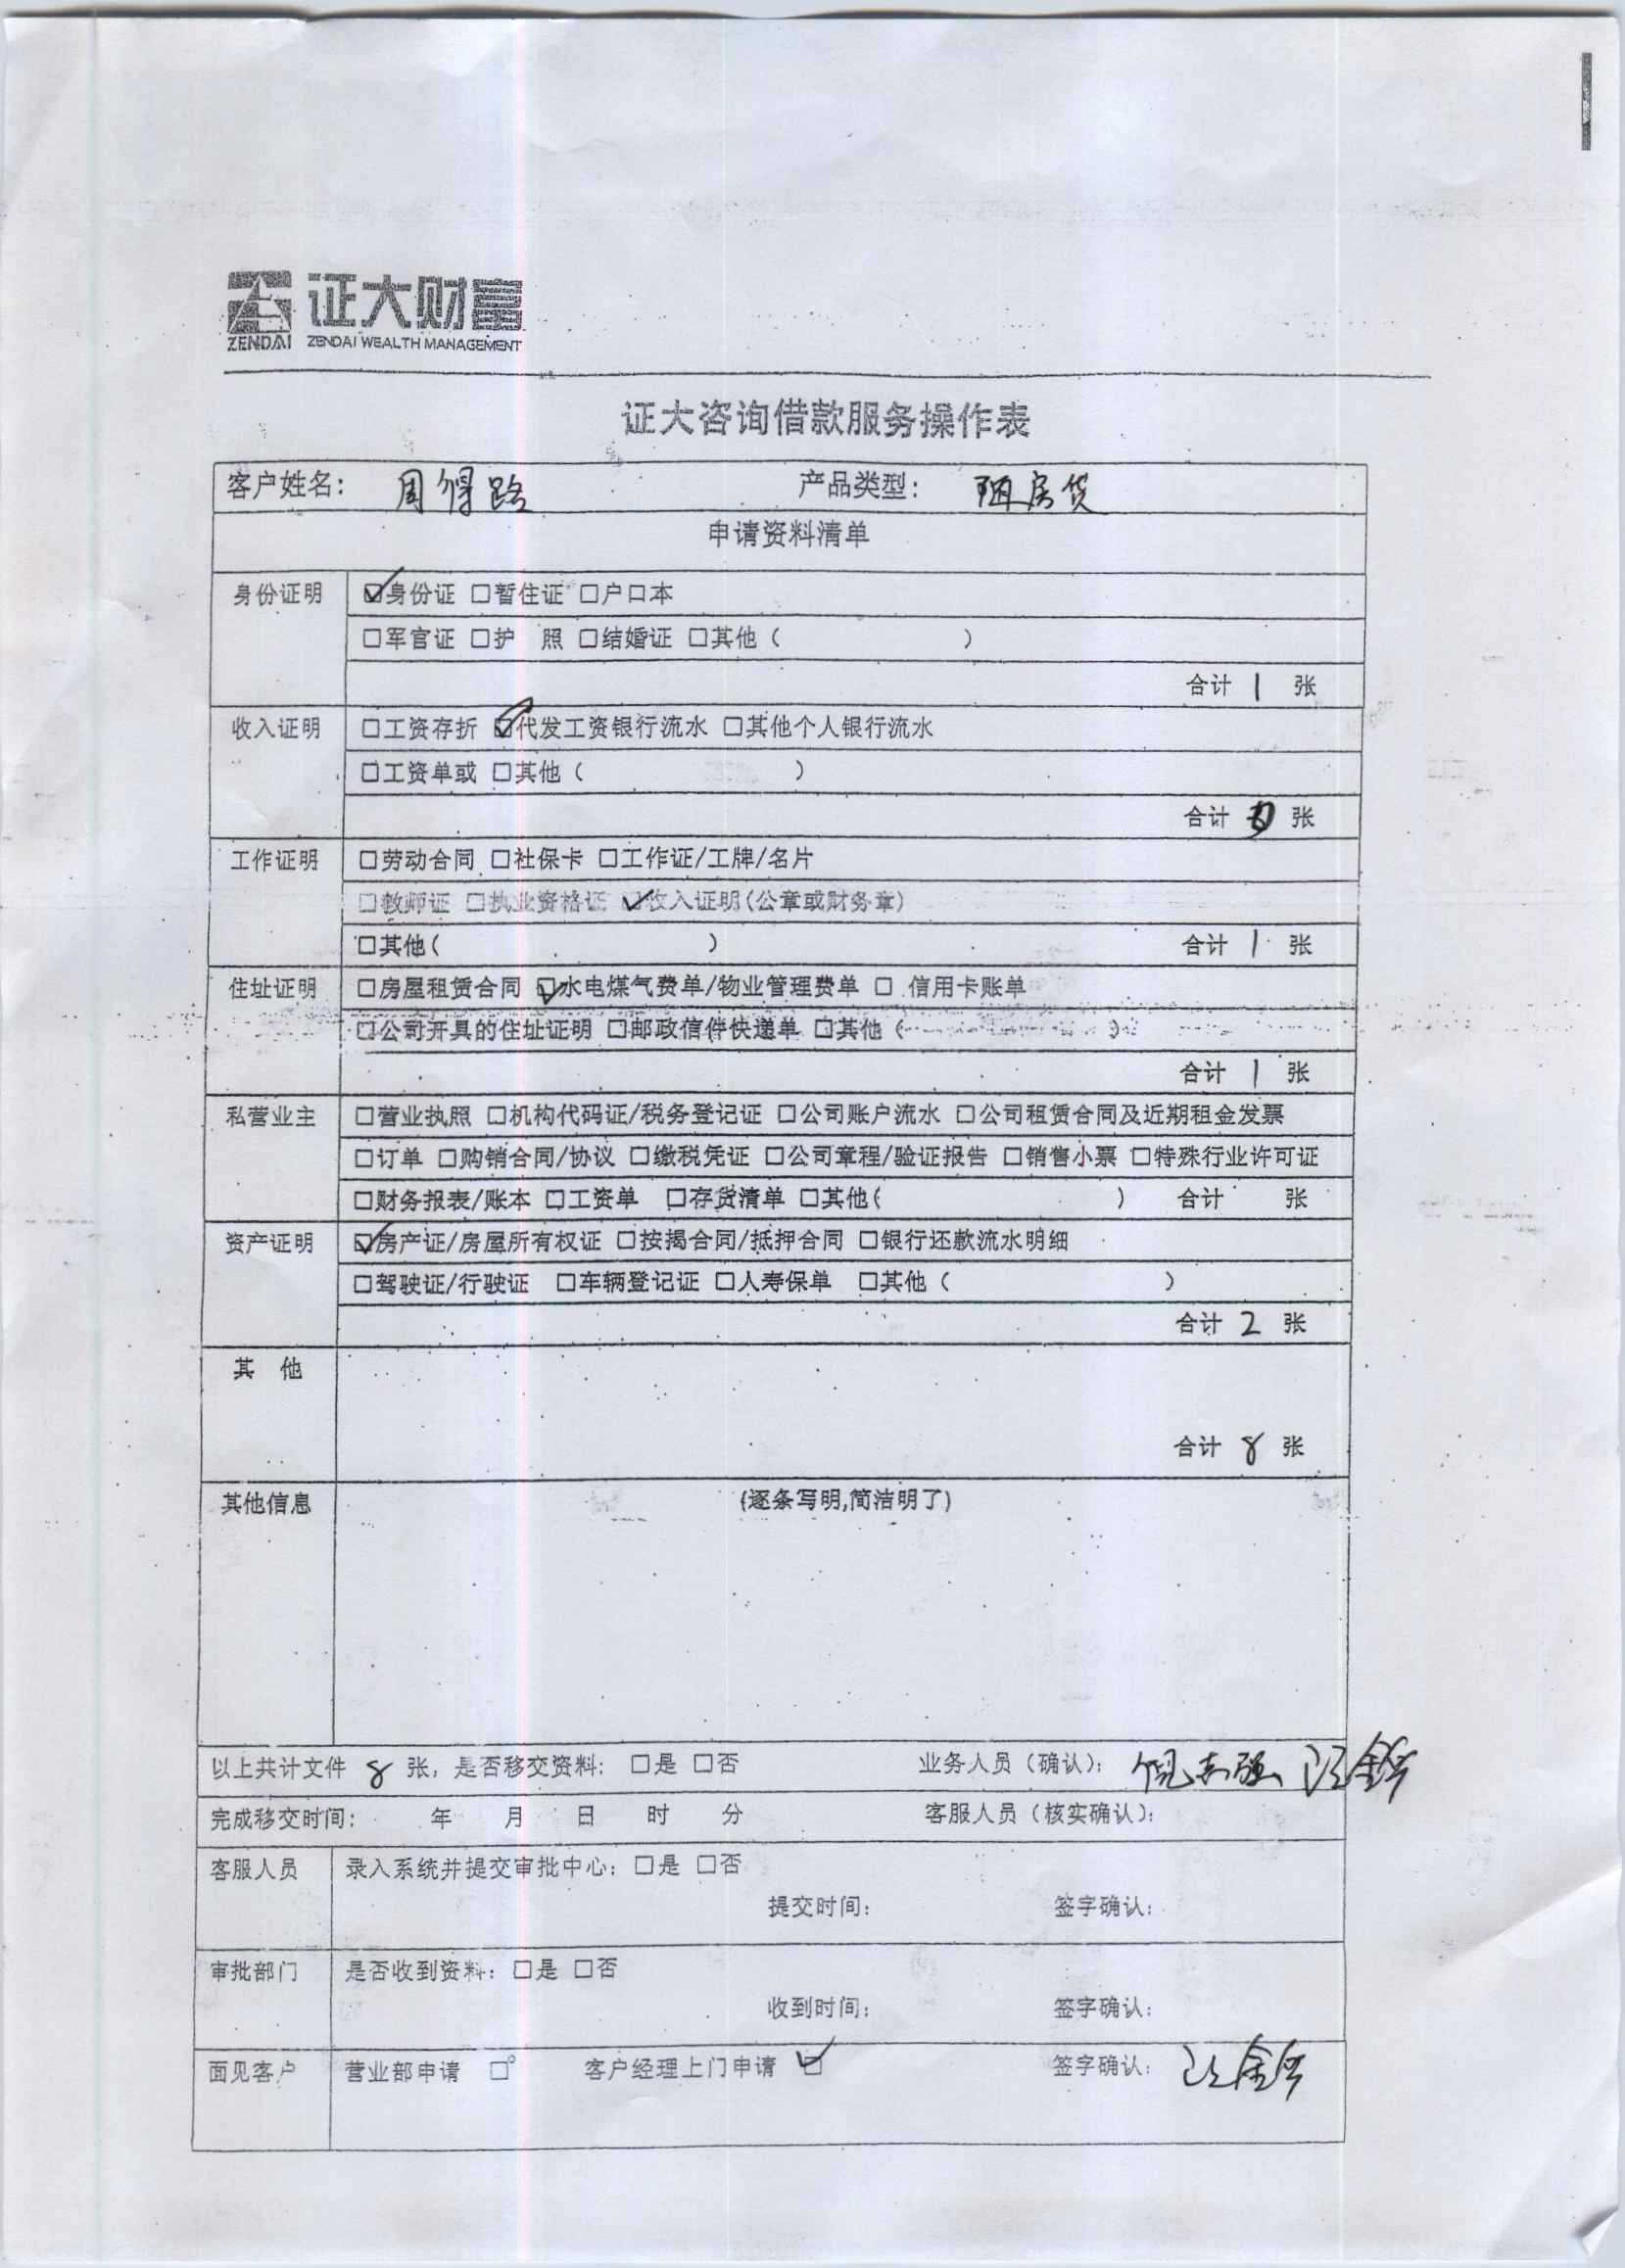 证大财富
ZENDAI ZENDAI WEALTH MANAGEMENT
证大咨询借款服务操作表
客户姓名: 周得路 产品类型: 房贷
申请资料清单
身份证明 ☑身份证 □暂住证 □户口本
□军官证 □护 照 □结婚证 □其他( )
合计 1 张
收入证明 □工资存折 ☑代发工资银行流水 □其他个人银行流水
□工资单或 □其他( )
合计 张
工作证明 □劳动合同 □社保卡 □工作证/工牌/名片
□教师证 □执业资格证 ☑收入证明(公章或财务章)
□其他( ) 合计 1 张
住址证明 □房屋租赁合同 ☑水电煤气费单/物业管理费单 □ 信用卡账单
□公司开具的住址证明 □邮政信件快递单 □其他( )
合计 1 张
私营业主 □营业执照 □机构代码证/税务登记证 □公司账户流水 □公司租赁合同及近期租金发票
□订单 □购销合同/协议 □缴税凭证 □公司章程/验证报告 □销售小票 □特殊行业许可证
□财务报表/账本 □工资单 □存货清单 □其他( ) 合计 张
资产证明 ☑房产证/房屋所有权证 □按揭合同/抵押合同 □银行还款流水明细
□驾驶证/行驶证 □车辆登记证 □人寿保单 □其他( )
合计 2 张
其 他
合计 8 张
其他信息 (逐条写明,简洁明了)
以上共计文件 8 张, 是否移交资料: □是 □否 业务人员(确认): 倪志强
完成移交时间: 年 月 日 时 分 客服人员(核实确认):
客服人员 录入系统并提交审批中心: □是 □否
提交时间: 签字确认:
审批部门 是否收到资料: □是 □否
收到时间: 签字确认:
面见客户 营业部申请 □ 客户经理上门申请 ☑ 签字确认: